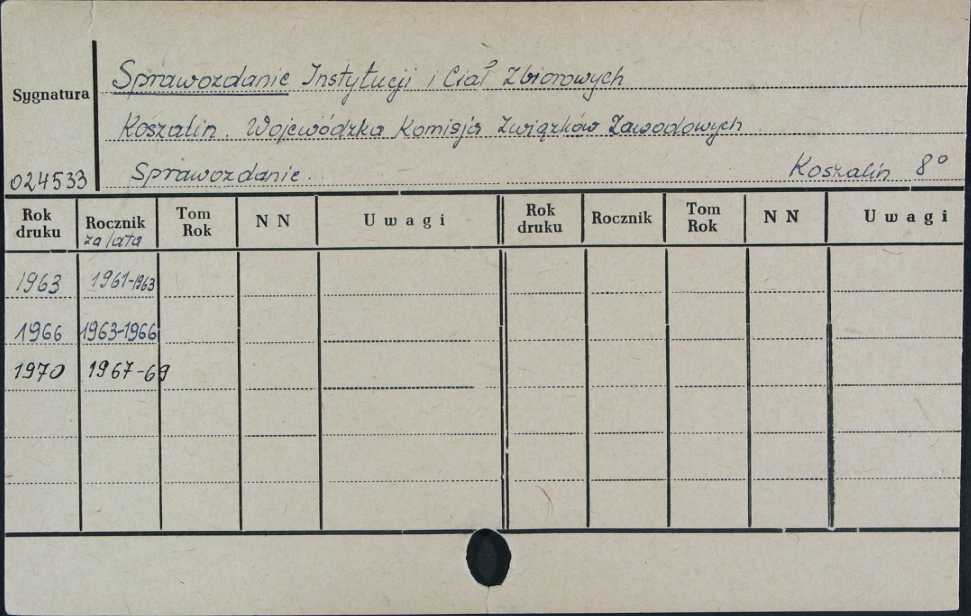 Sprawozdanie Instytucji i Ciał Zbiorowych
Sygnatura
Koszalin. Wojewódzka Komisja Związków Zawodowych
024533 Sprawozdanie. Koszalin 8°
Rok druku Rocznik za lata Tom Rok N N Uwagi Rok druku Rocznik Tom Rok N N Uwagi
1963 1961-1963
1966 1963-1966
1970 1967-69